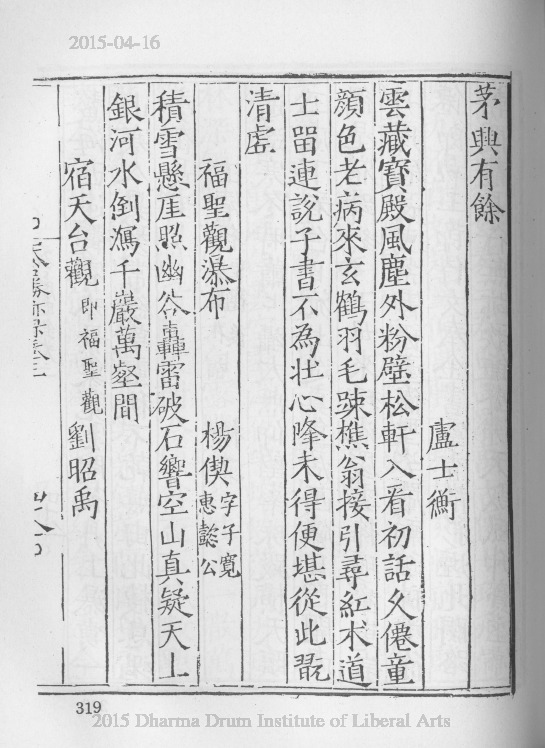 2015-04-16
茅興有餘
盧士衡
雲藏寶殿風塵外粉壁松軒入看初話久僊童
顏色老病來玄鶴羽毛踈樵翁接引尋紅朮道
士留連說子書不為壯心降未得便堪從此翫
清虛
福聖觀瀑布 楊偰 字子寬 惠懿公
積雪懸崖照幽谷 轟雷破石響空山真疑天上
銀河水倒瀉千巖萬壑間
宿天台觀 即福聖觀 劉昭禹
319
2015 Dharma Drum Institute of Liberal Arts